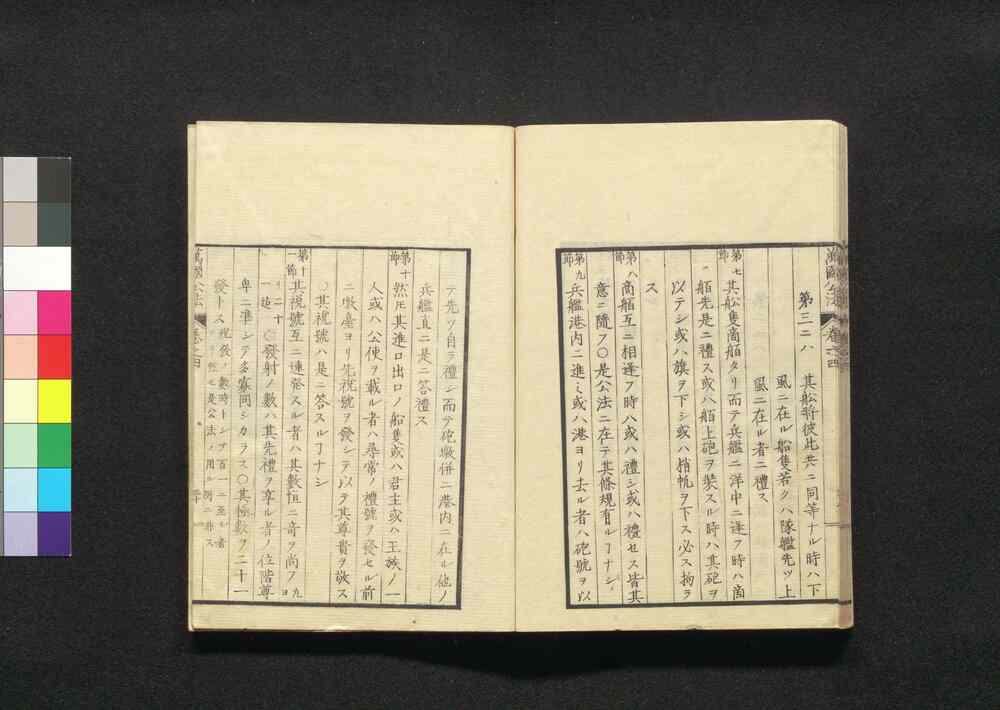 萬國公法　卷之四
第三ニハ　其舩将彼此共ニ同等ナル時ハ下
風ニ在ル船隻若クハ隊艦先ツ上
風ニ在ル者ニ禮ス
第七節　其舩隻商舶タリ而テ兵艦ニ洋中ニ逢フ時ハ商
舶先是ニ禮ス或ハ舶上砲ヲ裝スル時ハ其砲ヲ
以テシ或ハ旗ヲ下シ或ハ梢帆ヲ下ス必ス拘ラ
ス
第八節　商舶互ニ相逢フ時ハ或ハ禮シ或ハ禮セス皆其
意ニ隨フ○是公法ニ在テ其條規有ルヿナシ
第九節　兵艦港内ニ進ミ或ハ港ヨリ去ル者ハ砲號ヲ以
テ先ツ自ラ禮シ而テ砲墩併ニ港内ニ在ル他ノ
兵艦直ニ是ニ答禮ス
第十節　然圧其進口出口ノ船隻或ハ君主或ハ王族ノ一
人或ハ公使ヲ載ル者ハ尋常ノ禮號ヲ發セル前
ニ墩臺ヨリ先祝號ヲ發シテ以テ其尊貴ヲ敬ス
○其祝號ハ是ニ答スルヿナシ
第十一節　其祝號互ニ連発スル者ハ其數恒ニ竒ヲ尚フ九ヨ
リ二十一迄○發射ノ數ハ其先禮ヲ享ル者ノ位階尊
卑ニ準シテ多寡同シカラス○其極數ヲ二十一
發トス祝發ノ數時トシテ百一ニ至ル者
有リ然レ圧是公法ノ用ル例ニ非ス
萬國公法　卷之四